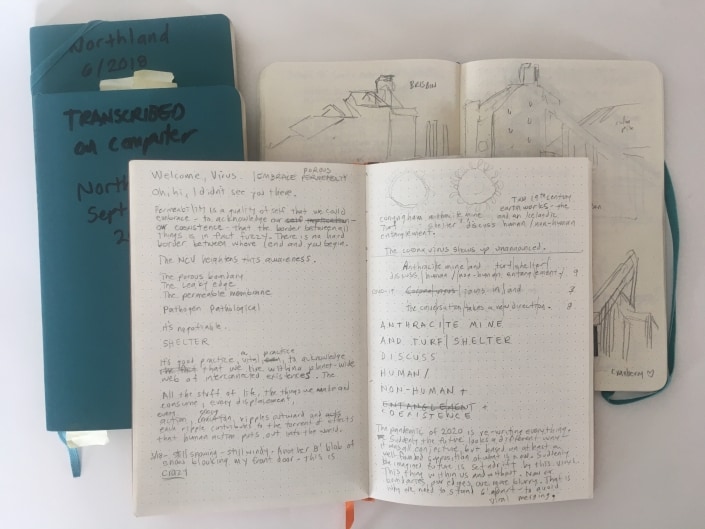 Northland
6/2018
TRANSCRIBED
on computer
North
Sept
2
BRISTOL
Welcome, Virus. / EMBRACE POROUS PERMEMENT
Oh, hi, I didn't see you there.
Permeability is a quality of self that we could
embrace - to acknowledge our self replication
or coexistence - that the border between all
things is in fact fuzzy. There is no hard
border between where I end and you begin.
The NCV heightens this awareness.
The porous boundary
The leaky edge
The permeable membrane
Pathogen Pathological
It's negotiable.
SHELTER
It's good practice, a vital practice, to acknowledge
that we live within a planet-wide
web of interconnected existences. The
All the stuff of life, the things we make and
consume, every displacement,
every
action, ripples outward and
each ripple contributes to the torrent of effects
that human action puts out into the world.
still snowing - still windy - Another 8' blob of
snow blocking my front door - this is
CRAZY
Two 19th century
earthworks - the
anthracite mine and an Icelandic
Turf shelter discuss human/non-human
entanglement.
The corona virus shows up unannounced.
Anthracite mine and turf/shelter/
discuss/human/non-human entanglement/ 9
joins in/and 3
The conversation takes a new direction. 8
ANTHRACITE MINE
AND TURF/SHELTER
DISCUSS
HUMAN/
NON-HUMAN +
ENTANGLEMENT +
COEXISTENCE
The pandemic of 2020 is rerouting everything.
Suddenly the future looks a different way.
It was all conjecture, but based on at least a
well-founded supposition of what is now. Suddenly
the imagined future is set adrift by this virus.
This thing within us and without. Now our
boundaries, our edges, are more blurry. That is
why we need to stand 6' apart - to avoid
viral merging.
cranberry